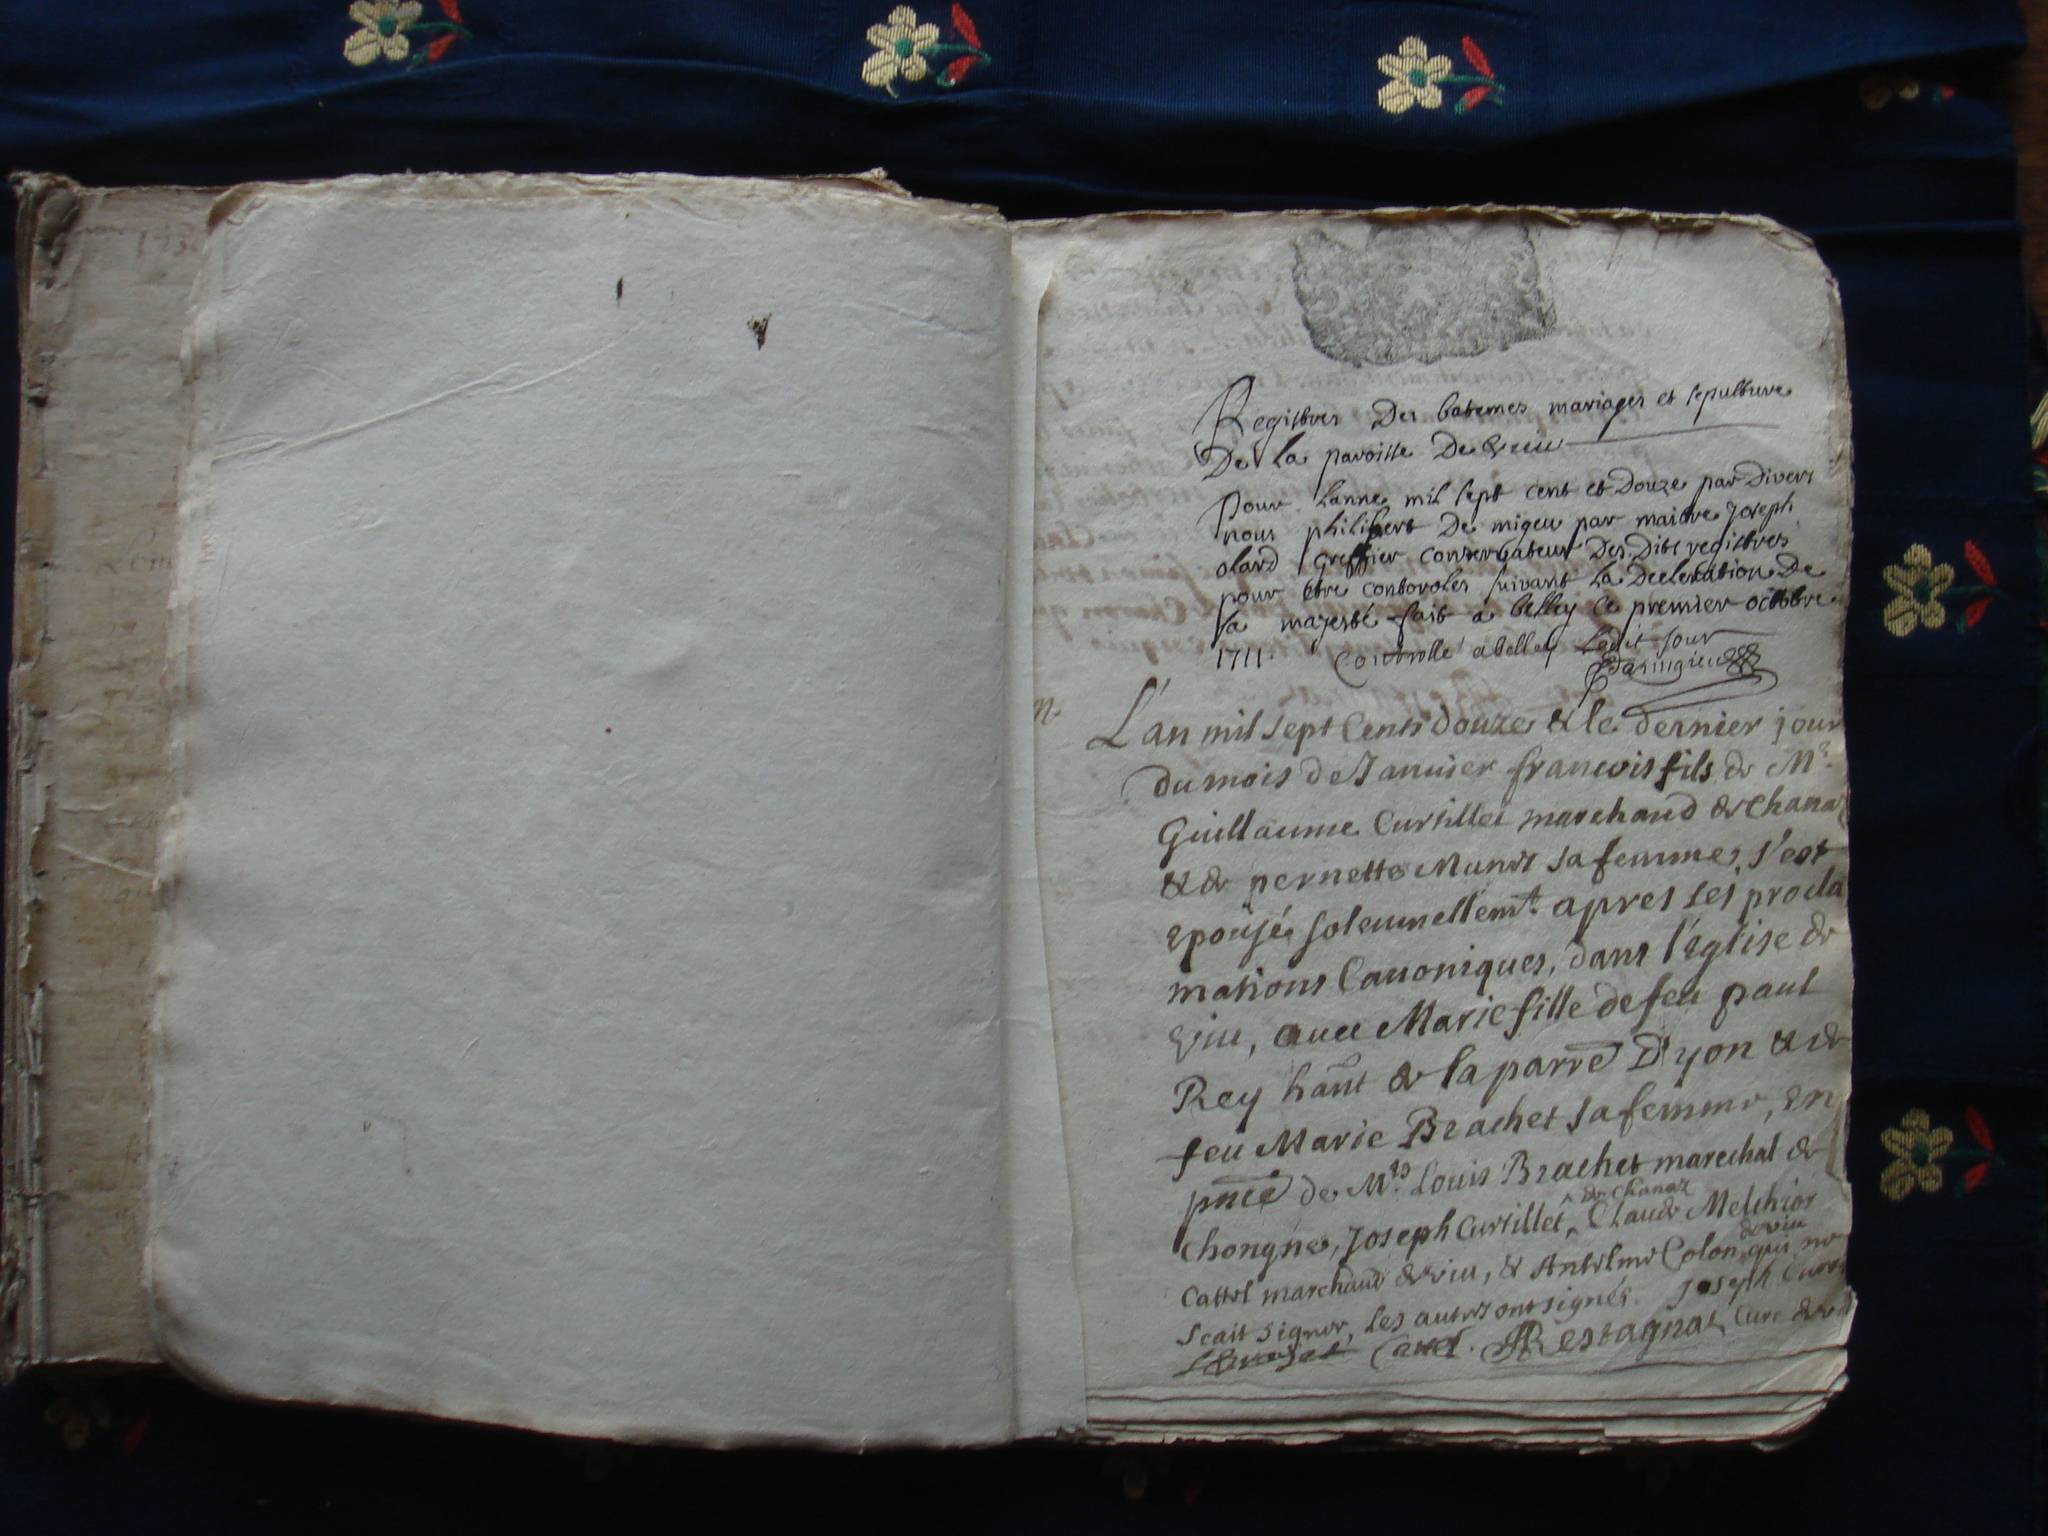 Registres Des batemes mariages et sepulture
De la paroisse De vieu
Pour lanne mil sept cent et Douze par Divers
nous philibert De migeu par maitre Joseph
olard greffier conservateur Des Dits registres
pour etre controles suivant la Decleration De
sa majesté fait a belley ce premier octobre
1711. Controllé a belley Ledit Jour
L'an mil sept Cents douze & le dernier jour
du mois de Januier francois fils de Mr.
Guillaume Curtillet marchand de Chanaz
& de pernette Munet sa femme, s'est
epousé solemnellemt. apres les procla
mations Canoniques, dans l'église de
viu, avec Marie fille de feu paul
Rey hant de la parre D'yon & de
feu Marie Brachet sa femme, en
pnce de Mrs. Louis Brachet marechal de
chongne, Joseph Curtillet ^ de chanaz Claude Melchior
Cattel marchand de viu, & Antelme Colon de viu qui ne
scait signer, les autres ont signés. Joseph
Cattel. Restagnat Curé de